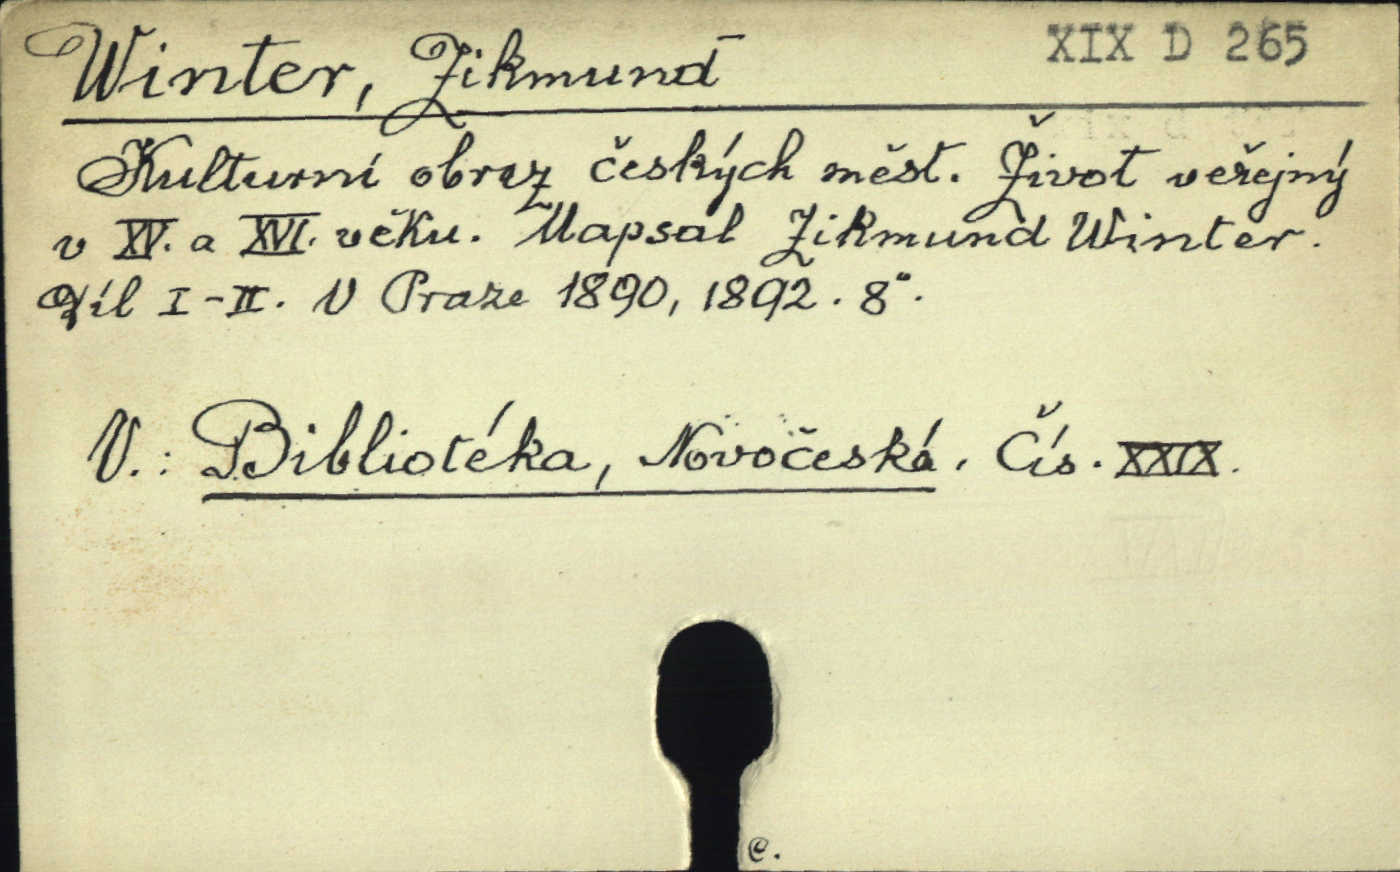 Winter, Zikmund
XIX D 265
Kulturní obraz českých měst. Život veřejný
v XV. a XVI. věku. Napsal Zikmund Winter.
Díl I-II. V Praze 1890, 1892. 8°.
V.: Bibliotéka, Novočeská. Čís. XXIX.
C.